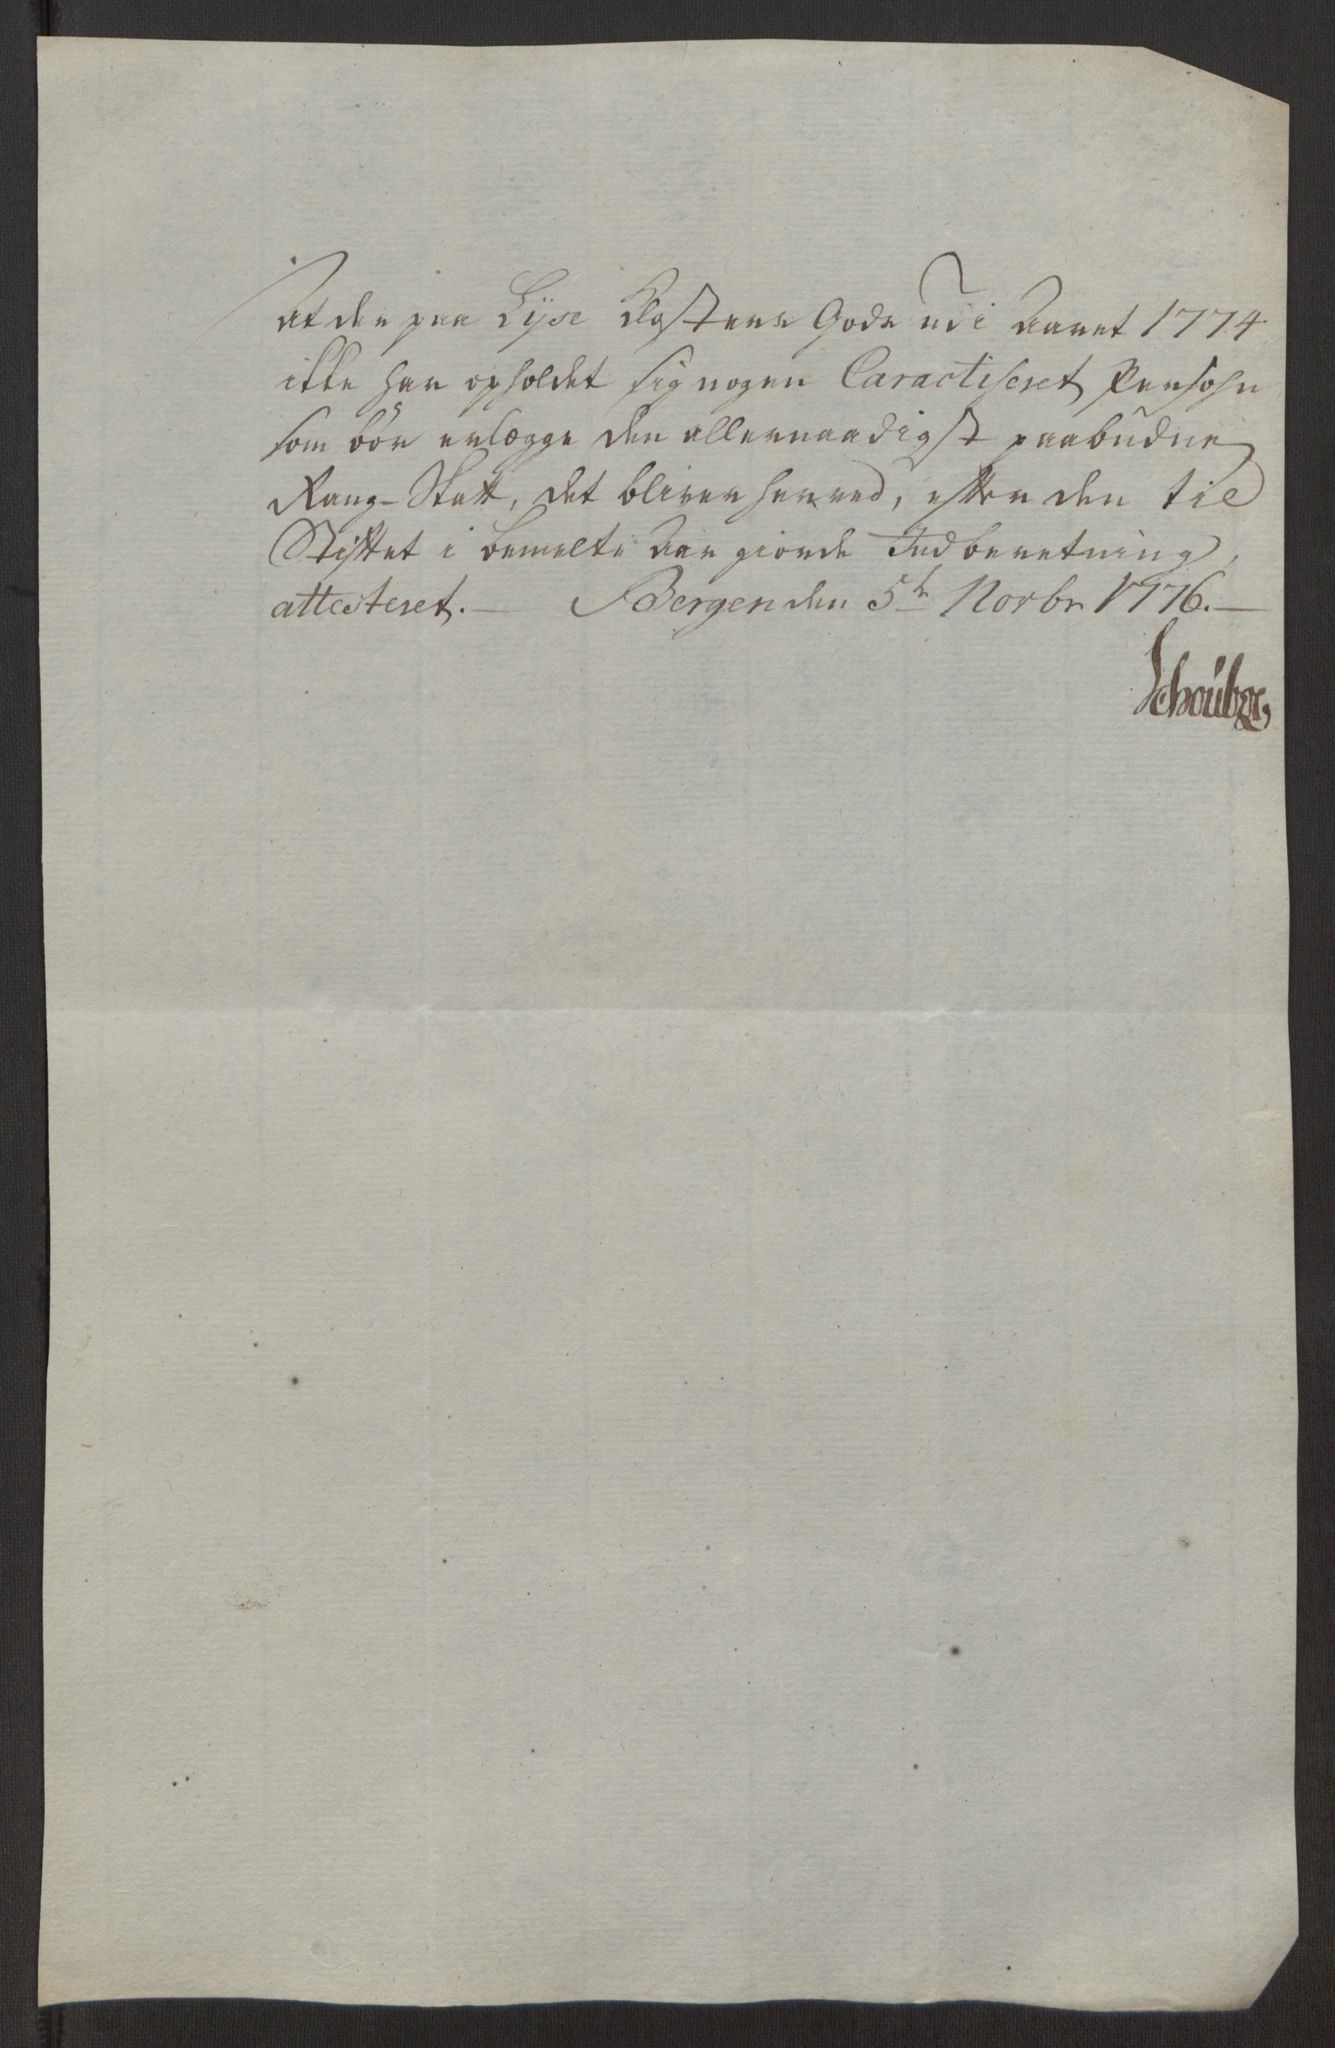 At der paa Lyse Closters Gods udi Aaret 1774
ikke har opholdet sig nogen Caractiseret Persohn
som bör erlægge den allernaadigst paabudne
Rang-Skatt, det bliver herved, efter den til
Stiftet i bemelte Aar giorde Indberetning,
attesteret. — Bergen den 5te Novbr 1776. —